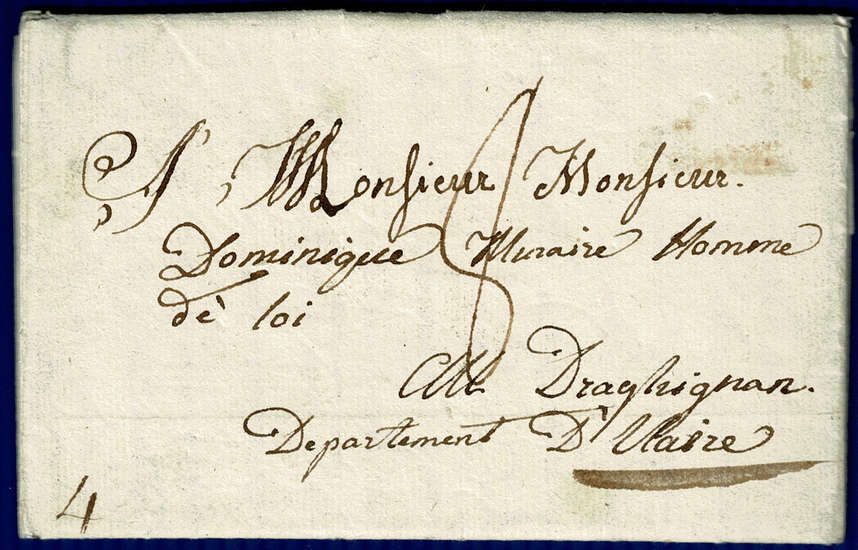 A Monsieur Monsieur.
Dominique Muraire Homme
dè loi
Draghignan.
Departement D'Vaire
4